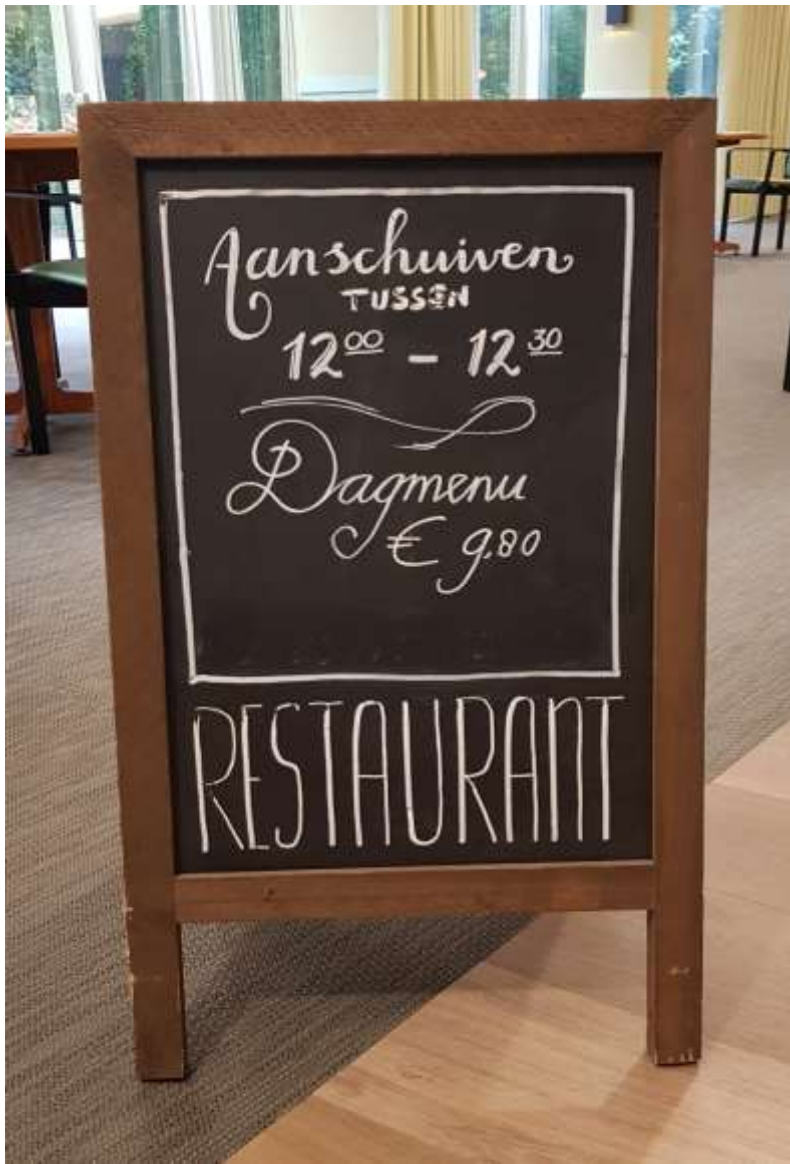 Aanschuiven
TUSSEN
1200 - 12 30
Dagmenu
€ 9.80
RESTAURANT